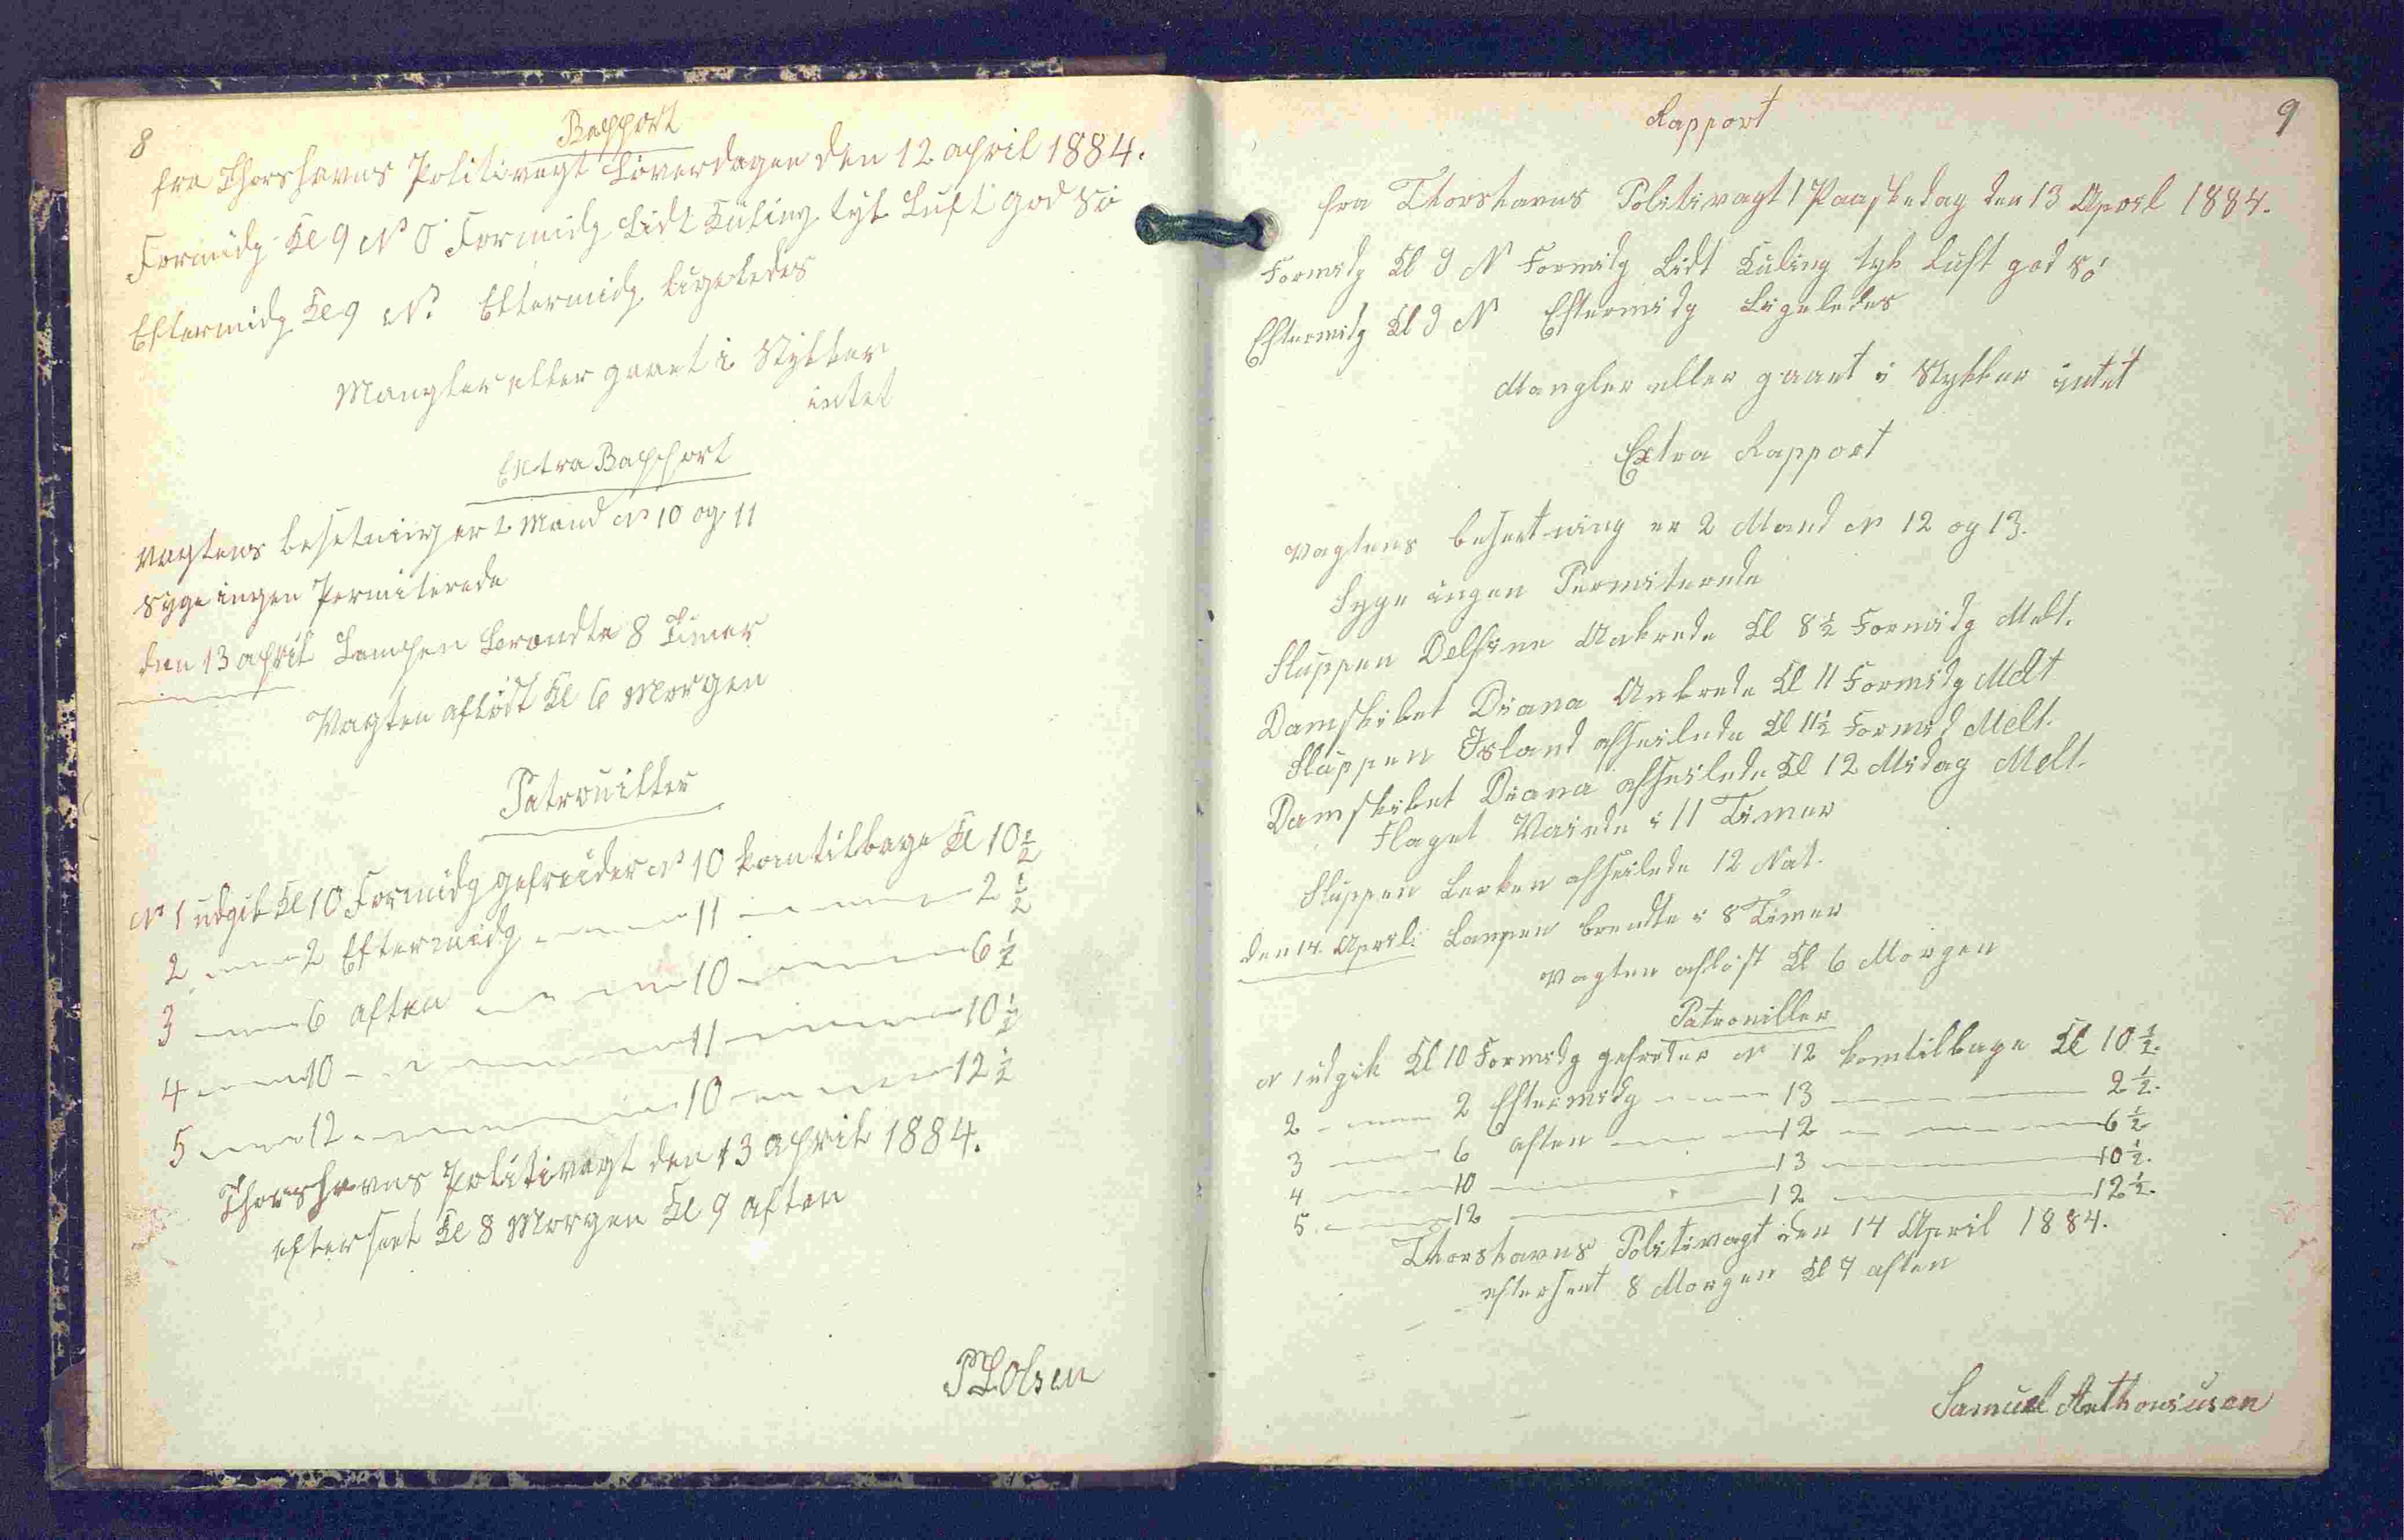 8
Rapport
fra Thorshavns Politivagt Löverdagen den 12 april 1884.
Formidg Kl 9 N O Formidg Lidt Kuling tyk Luft god Sö
Eftermidg Kl 9 N. Eftermidg Ligeledes
Mangler eller gaaet i Stykker
intet
Extra Rapport
Vagtens besetning er 2 Mand N 10 og 11
Syge ingen Permiterede
den 13 april Lampen brændte 8 Timer
Vagten aflöst Kl 6 Morgen
Patrouiller
N 1 udgik Kl 10 Formidg gefreider N 10 kom tilbage Kl 10 1/2
2 — 2 Eftermidg — 11 — 2 1/2
3 — 6 aften — 10 — 6 1/2
4 — 10 — 11 — 10 1/2
5 — 12 — 10 — 12 1/2
Thorshavns Politivagt den 13 april 1884.
efterseet Kl 8 Morgen Kl 9 aften
P L Olsen
9
Rapport
fra Thorshavns Politivagt 1 Paaskedag den 13 April 1884.
Formidg Kl 9 N Formidg Lidt Kuling tyk Luft god Sö
Eftermidg Kl 9 N Eftermidg Ligeledes
Mangler eller gaaet i Stykker intet
Extra Rapport
Vagtens besætning er 2 Mand N 12 og 13.
Syge ingen Permiterede
Sluppen Delfine Ankrede Kl 8 1/2 Formidg Melt.
Damskibet Diana Ankrede Kl 11 Formidg Melt
Sluppen Island afseilede Kl 11 1/2 Formid Melt.
Damskibet Diana afseilede Kl 12 Midag Melt.
Flaget Vaiede i 11 Timer
Sluppen Lerken afseilede 12 Nat.
den 14. April. Lampen brendte i 8 Timer
Vagten aflöst Kl 6 Morgen
Patrouiller
N 1 udgik Kl 10 Formidg gefreder N 12 kom tilbage Kl 10 1/2.
2 — 2 Eftermidg — 13 — 2 1/2.
3 — 6 aften — 12 — 6 1/2
4 — 10 — 13 — 10 1/2.
5 — 12 — 12 — 12 1/2.
Thorshavns Politivagt den 14 April 1884.
efterseet 8 Morgen Kl 9 aften
Samuel Anthoniusen